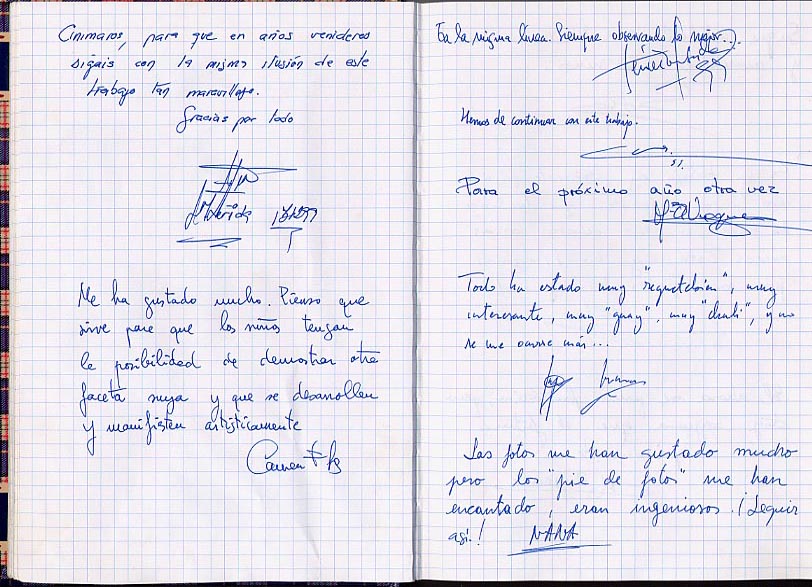 Animaros, para que en años venideros
sigais con la misma ilusión de este
trabajo tan maravilloso.
Gracias por todo
Me ha gustado mucho. Pienso que
sirve para que los niños tengan
la posibilidad de demostrar otra
faceta suya y que se desarrollen
y manifiesten artísticamente
Carmen
En la misma línea. Siempre observando lo mejor...
Hemos de continuar con este trabajo.
Para el próximo año otra vez
Todo ha estado muy "requetebien", muy
interesante, muy "guay", muy "chuli", y no
se me ocurre más...
Las fotos me han gustado mucho
pero los "pie de fotos" me han
encantado, eran ingeniosos. ¡Seguir
así!
NANA